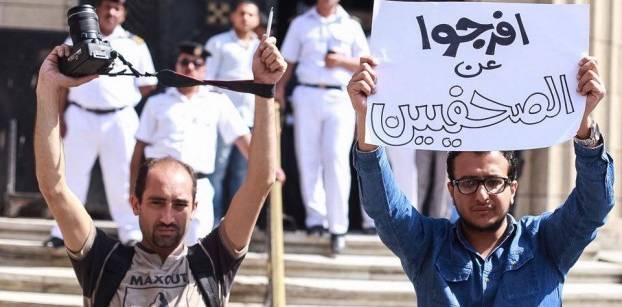 افرجوا
عن
الصحفيين
MAXOUT